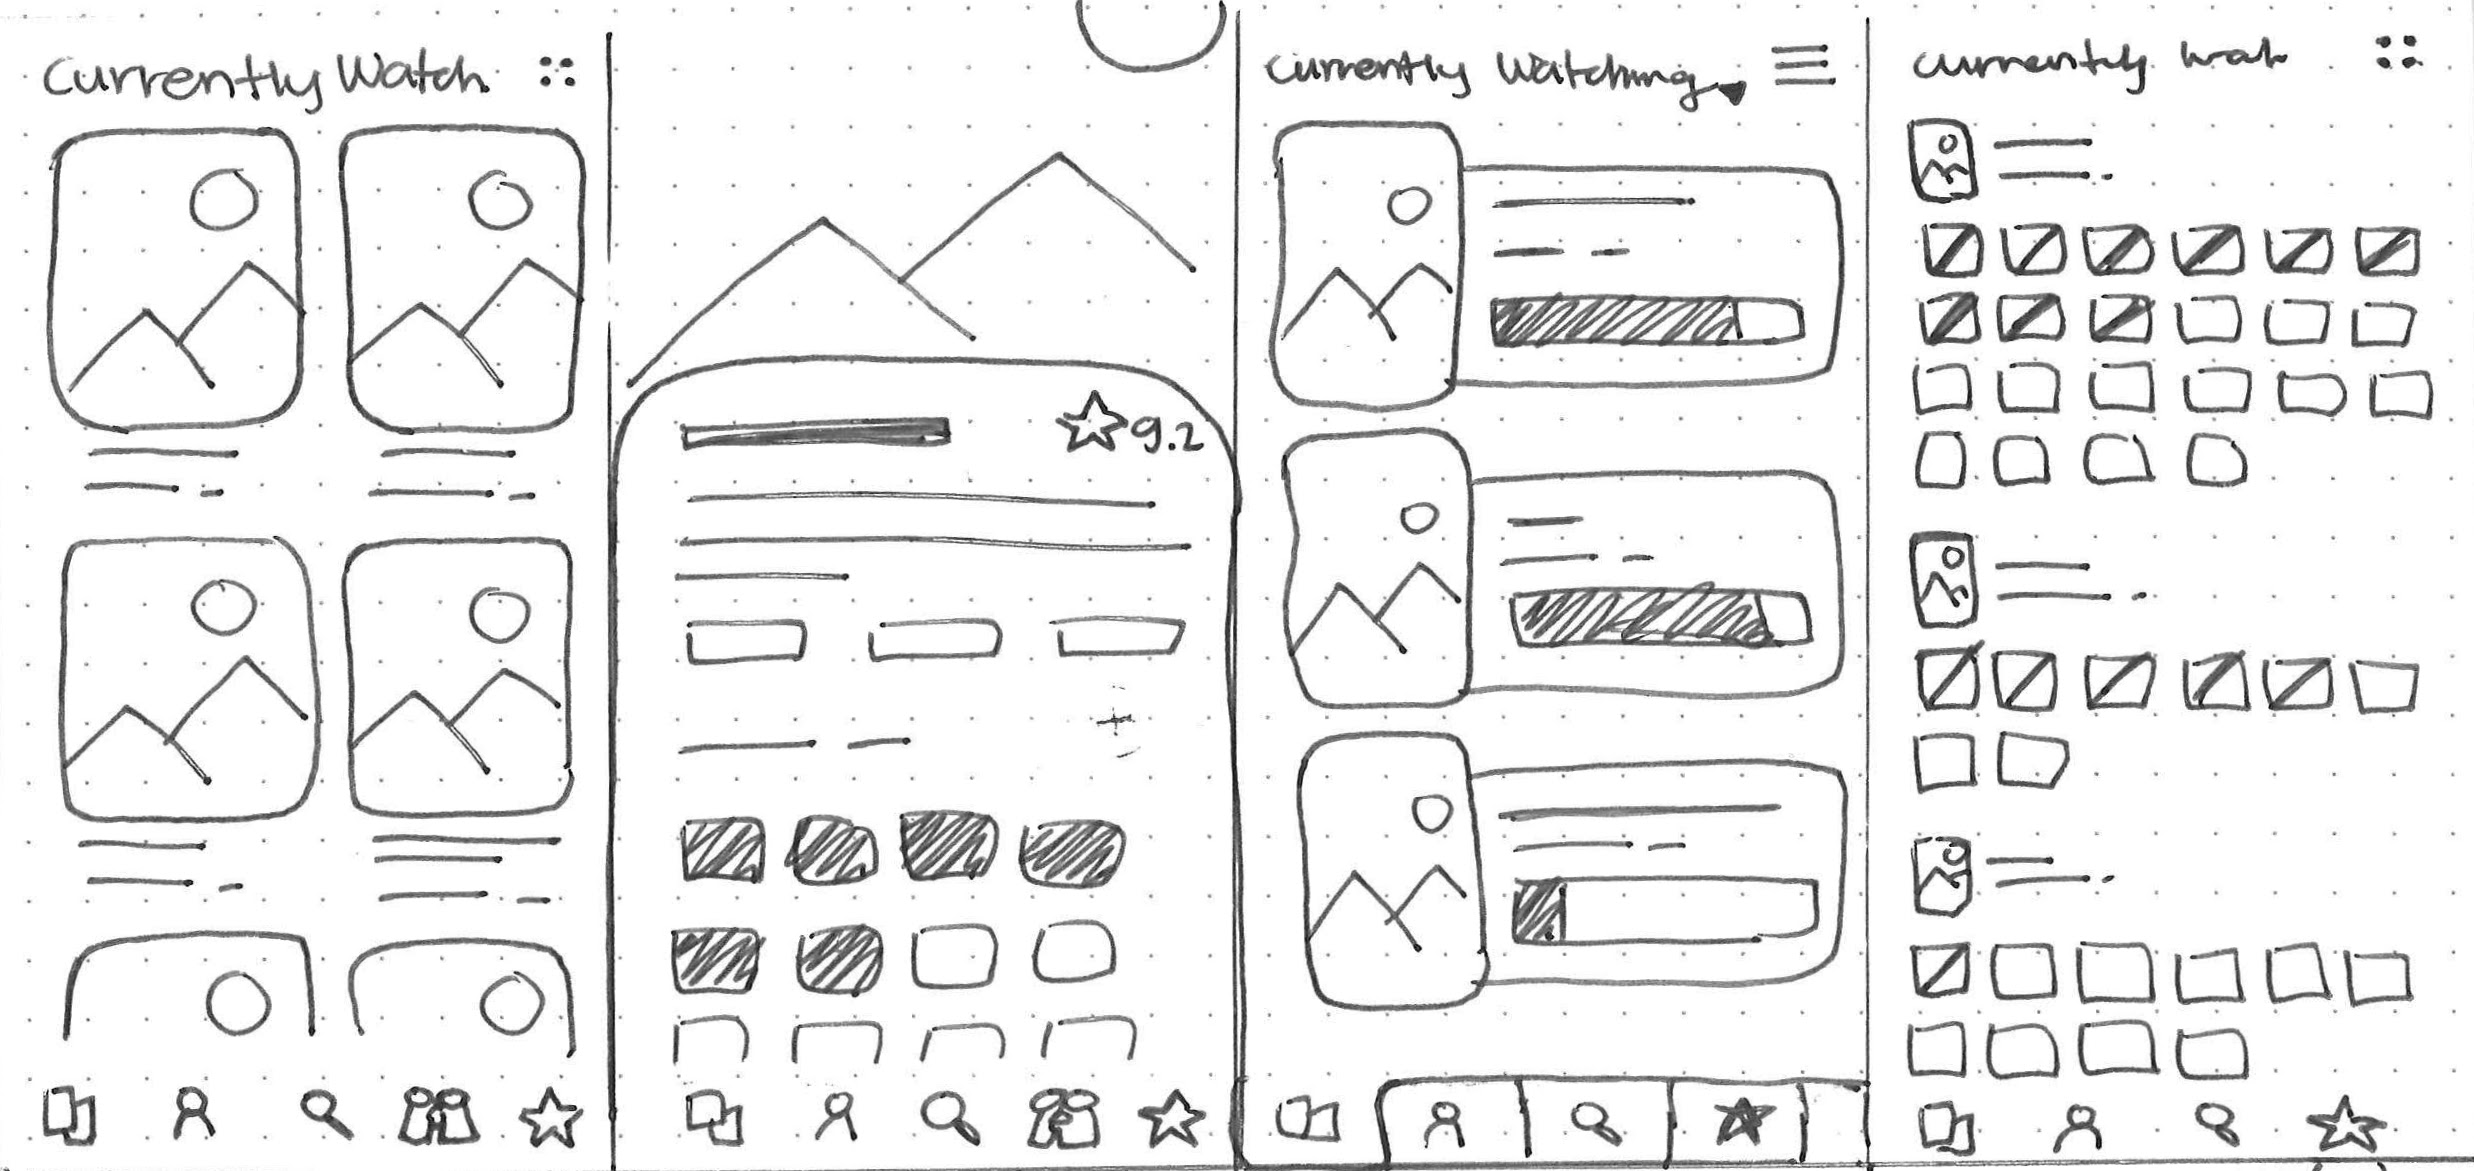 Currently Watch
9.2
Currently Watching
Currently wat